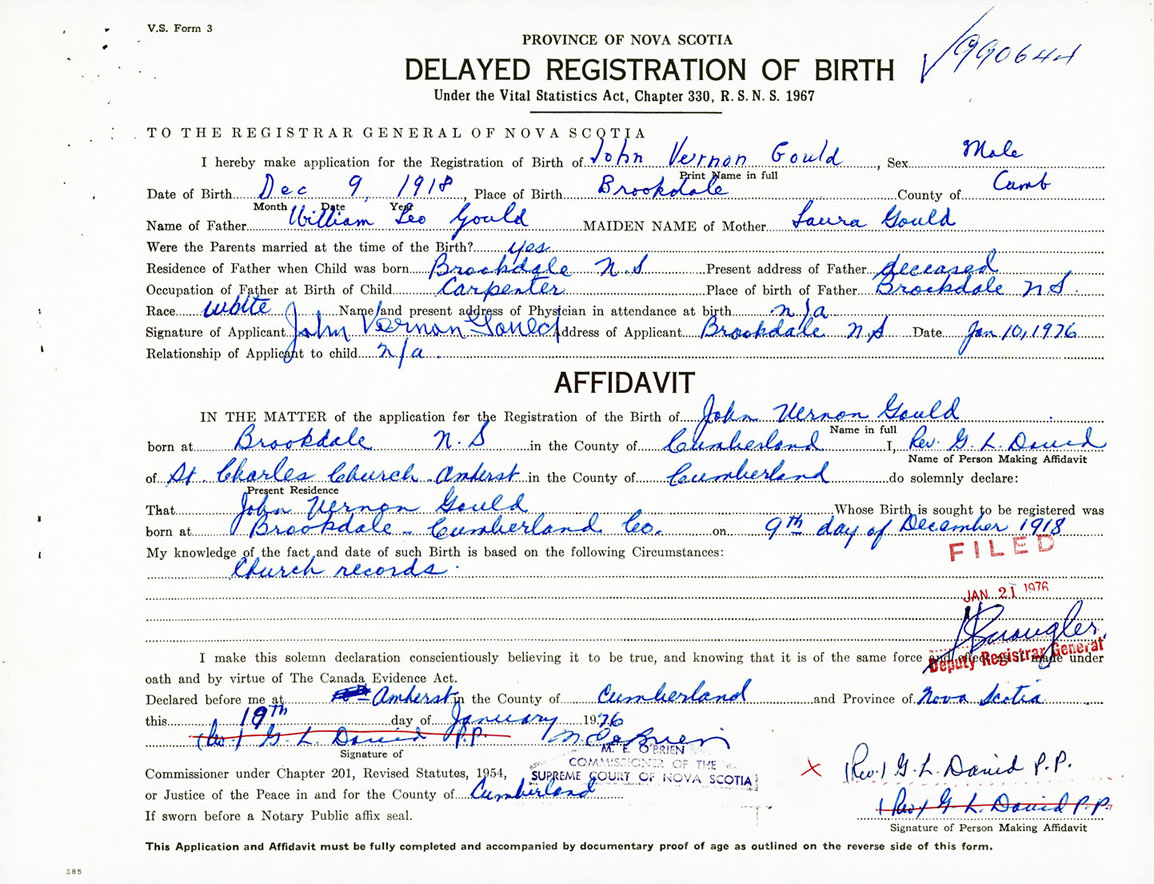 V.S. Form 3
PROVINCE OF NOVA SCOTIA
990644
DELAYED REGISTRATION OF BIRTH
Under the Vital Statistics Act, Chapter 330, R. S. N. S. 1967
TO THE REGISTRAR GENERAL OF NOVA SCOTIA
I hereby make application for the Registration of Birth of John Vernon Gould, Sex Male
Print Name in full
Date of Birth Dec 9, 1918, Place of Birth Brookdale County of Cumb
Month Date Year
Name of Father William Leo Gould MAIDEN NAME of Mother Laura Gould
Were the Parents married at the time of the Birth? yes
Residence of Father when Child was born Brookdale N.S Present address of Father deceased
Occupation of Father at Birth of Child Carpenter Place of birth of Father Brookdale N S.
Race white Name and present address of Physician in attendance at birth n/a
Signature of Applicant John Vernon Gould Address of Applicant Brookdale N.S Date Jan 10, 1976
Relationship of Applicant to child n/a.
AFFIDAVIT
IN THE MATTER of the application for the Registration of the Birth of John Vernon Gould
Name in full
born at Brookdale N.S in the County of Cumberland I, Rev. G. L. David
Name of Person Making Affidavit
of St. Charles Church Amherst in the County of Cumberland do solemnly declare:
Present Residence
That John Vernon Gould Whose Birth is sought to be registered was
born at Brookdale - Cumberland Co. on 9th day of December 1918
My knowledge of the fact and date of such Birth is based on the following Circumstances:
FILED
Church records.
JAN 21 1976
I make this solemn declaration conscientiously believing it to be true, and knowing that it is of the same force made under
Deputy Registrar General
oath and by virtue of The Canada Evidence Act.
Declared before me at Amherst in the County of Cumberland and Province of Nova Scotia
this 19th day of January 1976
(Rev.) G. L. David P.P. M E O'Brien
Signature of
M. E. O'BRIEN
COMMISSIONER OF THE
SUPREME COURT OF NOVA SCOTIA
Commissioner under Chapter 201, Revised Statutes, 1954,
or Justice of the Peace in and for the County of Cumberland
If sworn before a Notary Public affix seal.
X (Rev.) G. L. David P.P.
(Rev) G. L. David P.P.
Signature of Person Making Affidavit
This Application and Affidavit must be fully completed and accompanied by documentary proof of age as outlined on the reverse side of this form.